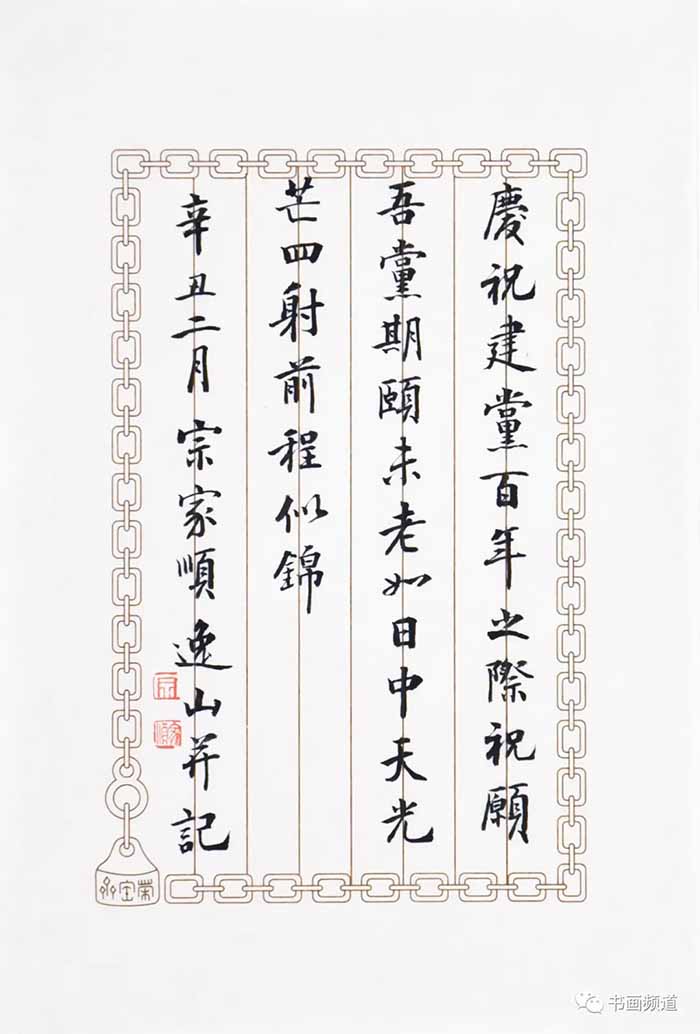 慶祝建黨百年之際祝願
吾黨期頤未老如日中天光
芒四射前程似錦
辛丑二月宗家順逸山并記
榮宝斋
书画频道